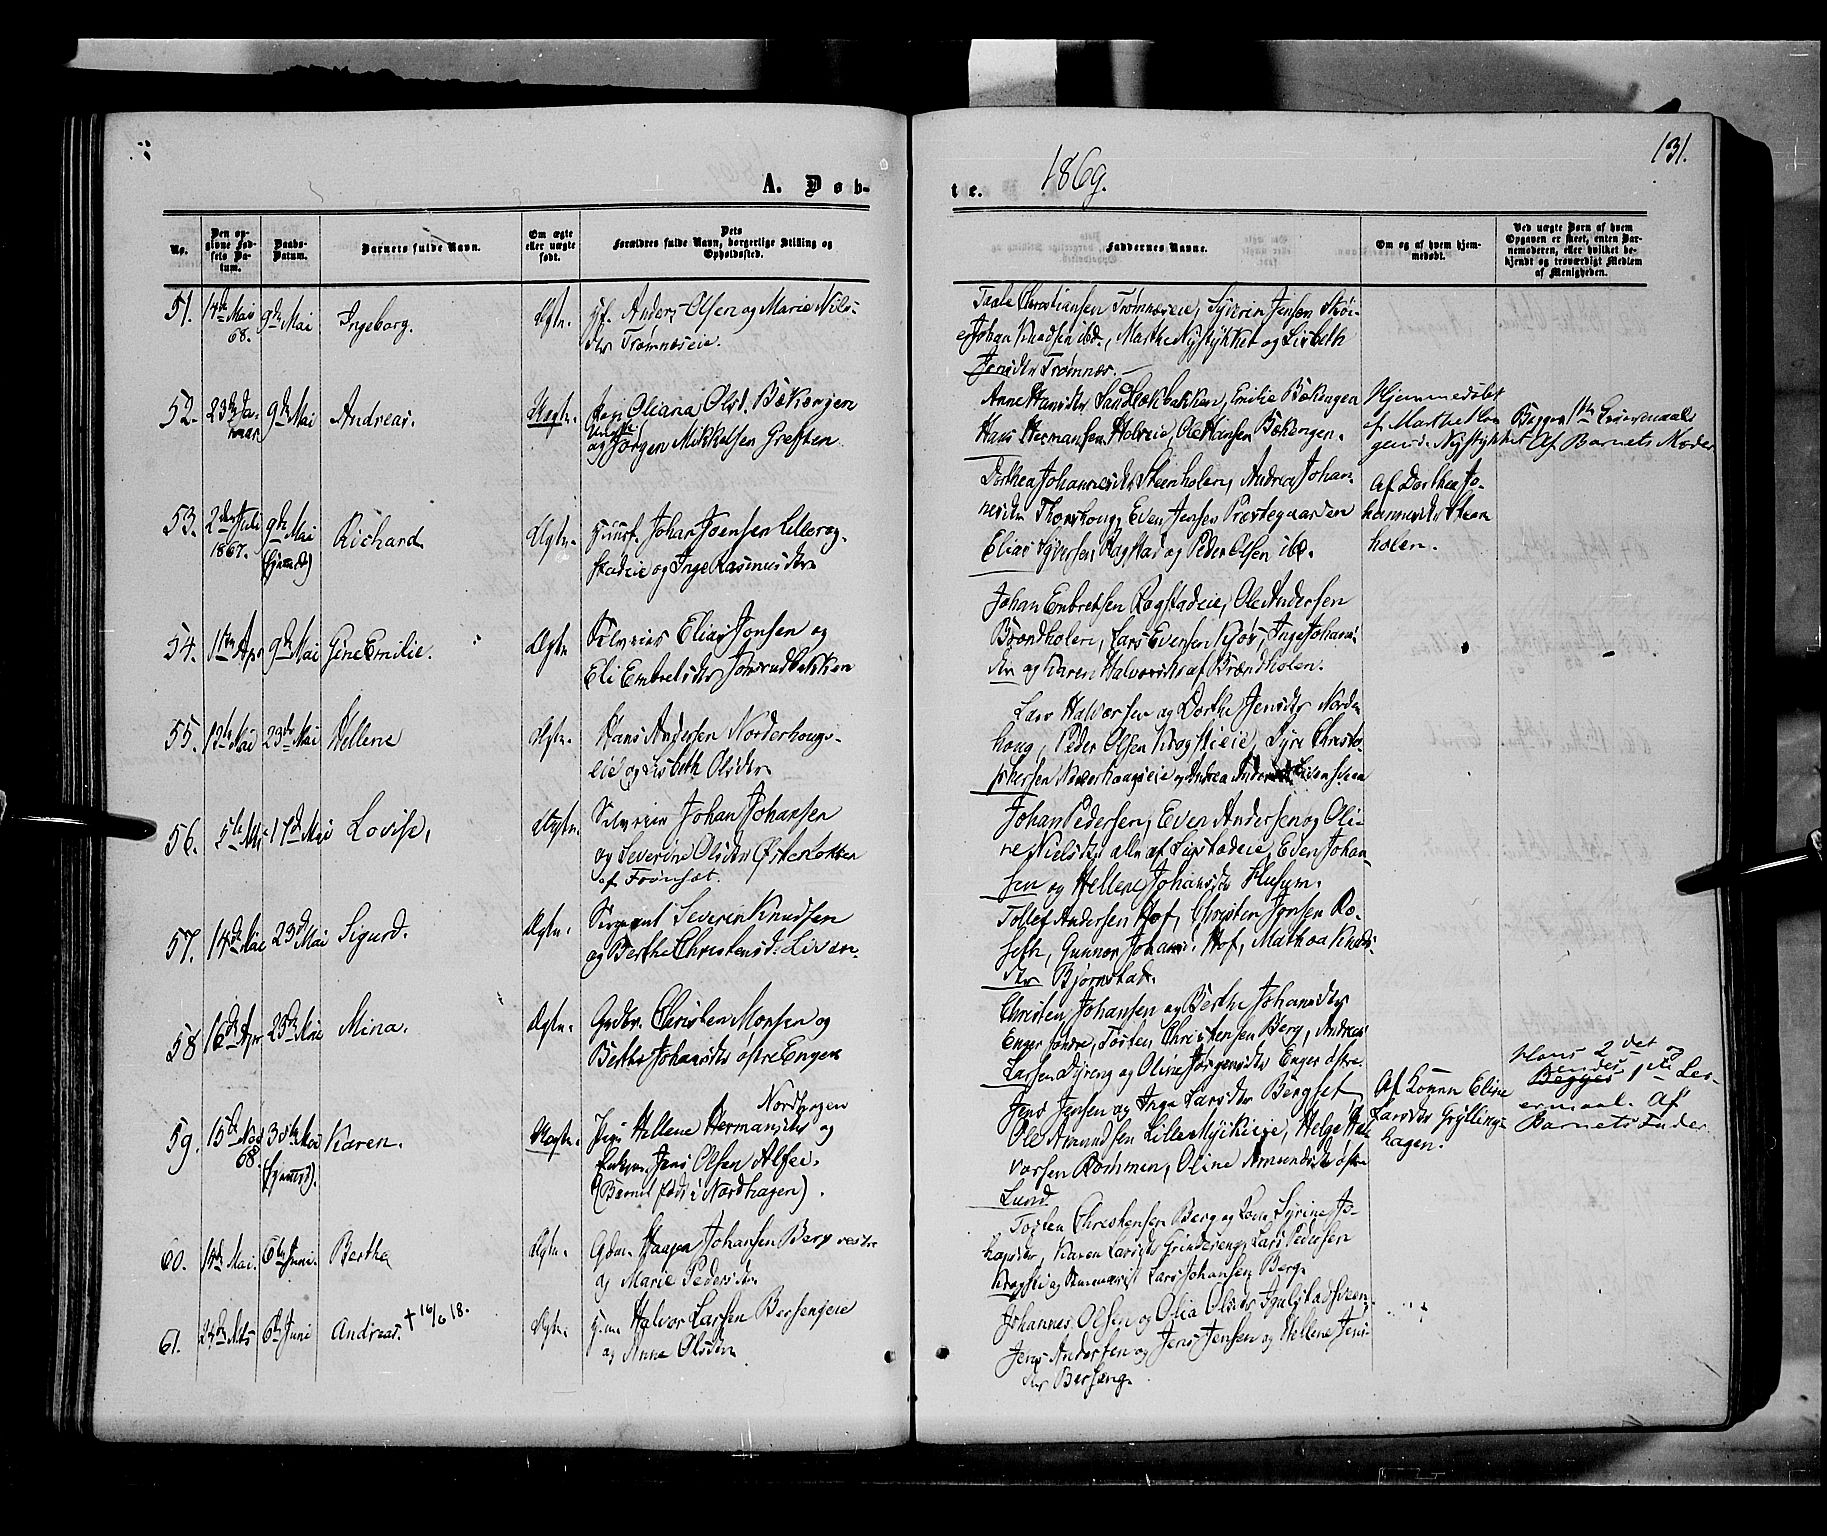 131.
1869.
A. Døb-
te.
No.
Den op-
givne Fød-
sels Da-
tum.
Daabs-
Datum.
Barnets fulde Navn.
Om ægte
eller uægte
født.
Dets
Forældres fulde Navn, borgerlige Stilling og
Opholdssted.
Faddernes Navne.
Om og af hvem hjem-
medøbt.
Ved uægte Børn af hvem
Opgaven er skeet, enten Bar-
nemoderen, eller hvilket be-
kjendt og troværdigt Medlem
af Menigheden.
51.
14de Mai
68.
9de Mai
Ingeborg.
Ægte.
Hf. Anders Olsen og Marie Nils-
dtr Trømnæseie.
Christiansen Trømnæseie, Syverin Jensen
Johan Knudsen ibd., Marthe Nystykket og Lisbeth
Jensdtr Trømnæs.
52.
23de Ja-
nuar
9de Mai
Andreas.
Uægte.
Pige Oliana Olsd. Bækengen
og Jørgen Mikkelsen Greften
Anne Hansdtr Sandbækbakken, Emilie Bækengen
Hans Hermansen Holseie, Ole Hansen Bækengen.
Hjemmedøbt
af Marthe
Nystykket
Begges 1ste Leiermaal
Af Barnets Moder
53.
2den Juli
1867.
9de Mai
Richard
Ægte.
Johan Joensen Lillerog-
stadeie og Inge Rasmusdtr
Dorthea Johannesdtr Steenholen, Andrea Johan-
nesdtr Thorshoug, Even Jensen Præstegaarden
Elias Syversen Ragstad og Peder Olsen ibd.
Af Dorthea Jo-
hannesdtr Steen
holen.
54.
11te Apr
9de Mai
Gine Emilie.
Ægte
Selveier Elias Jonsen og
Eli Embretsdtr Jonsrudbakken
Johan Embretsen Rogstadeie, Ole Andersen
Brændholen, Lars Evensen Kjos, Inge Johans
dtr og Karen Halvorsdtr af Brændholen.
55.
12te Mai
23de Mai
Hellene
Ægte.
Hans Andersen Norderhougs-
eie og Lisbeth Olsdtr
Lars Halvorsen og Dorthe Jensdtr Norder
houg, Peder Olsen Krogstieie, Syver Christo-
phersen Norderhougseie og Andrea
56.
5te
17de Mai
Lovise,
Ægte.
Selveier Johan Johansen
og Severine Olsdtr Østerløkken
af Frønsæt.
Johan Pedersen, Even Andersen og Oli-
ne Nielsdtr alle af Sigstadeie, Even Johan-
sen og Hellene Johansdtr Flusum.
57.
14de Mai
23de Mai
Sigurd.
Ægte.
Sergeant Severin Knudsen
og Berthe Christensd. Livaen.
Tollef Andersen Hof, Christen Jensen Ro-
seth, Gunnor Johansd. Hof, Mathea Knuds
dtr Bjørnstad.
58
16de Apr
23de Mai
Mina.
Ægte.
Gbr. Christen Monsen og
Berthe Johansdtr østre Enger
Christen Johansen og Berthe Johansdtr
Enger søndre, Tosten Christensen Berg, Andreas
Larsen Dyreng og Oline Jørgensdtr Enger østre
59.
15de Nov
68.
30te Mai
Karen.
Uægte.
Nordhagen
Pige Hellene Hermansdtr og
Enkem. Jens Olsen Alfei.
(Barnet født i Nordhagen).
Jens Jensen og Inga Larsdtr Bergset,
Ole Amundsen Lille Mykleeie, Helge Hal
vorsen Rommen, Oline Amundsdtr østre
Lund
Af Konen Eline
Larsdtr Gryllings
hagen.
Hans 2det og
hendes
Begges 1ste Lei-
ermaal. Af
Barnets Fader
60.
14de Mai.
6te Juni.
Berthe
Ægte.
Gdm. Haagen Johansen Berg vestre
og Marie Pedersdtr
Tosten Christensen Berg og Kone Syrine Jo-
hansdtr, Karen Larsdtr Grinderseng, Lars Pedersen
Krogsti og Lars Johansen Berg.
61.
24de Mts
6te Juni
Andreas. † 16/6 18.
Ægte.
Halvor Larsen Bersengeie
og Anne Olsdtr
Johannes Olsen og Olia Olsdtr
Jens Andersen og Jens Jensen og Hellene Jens
dtr Berseng.